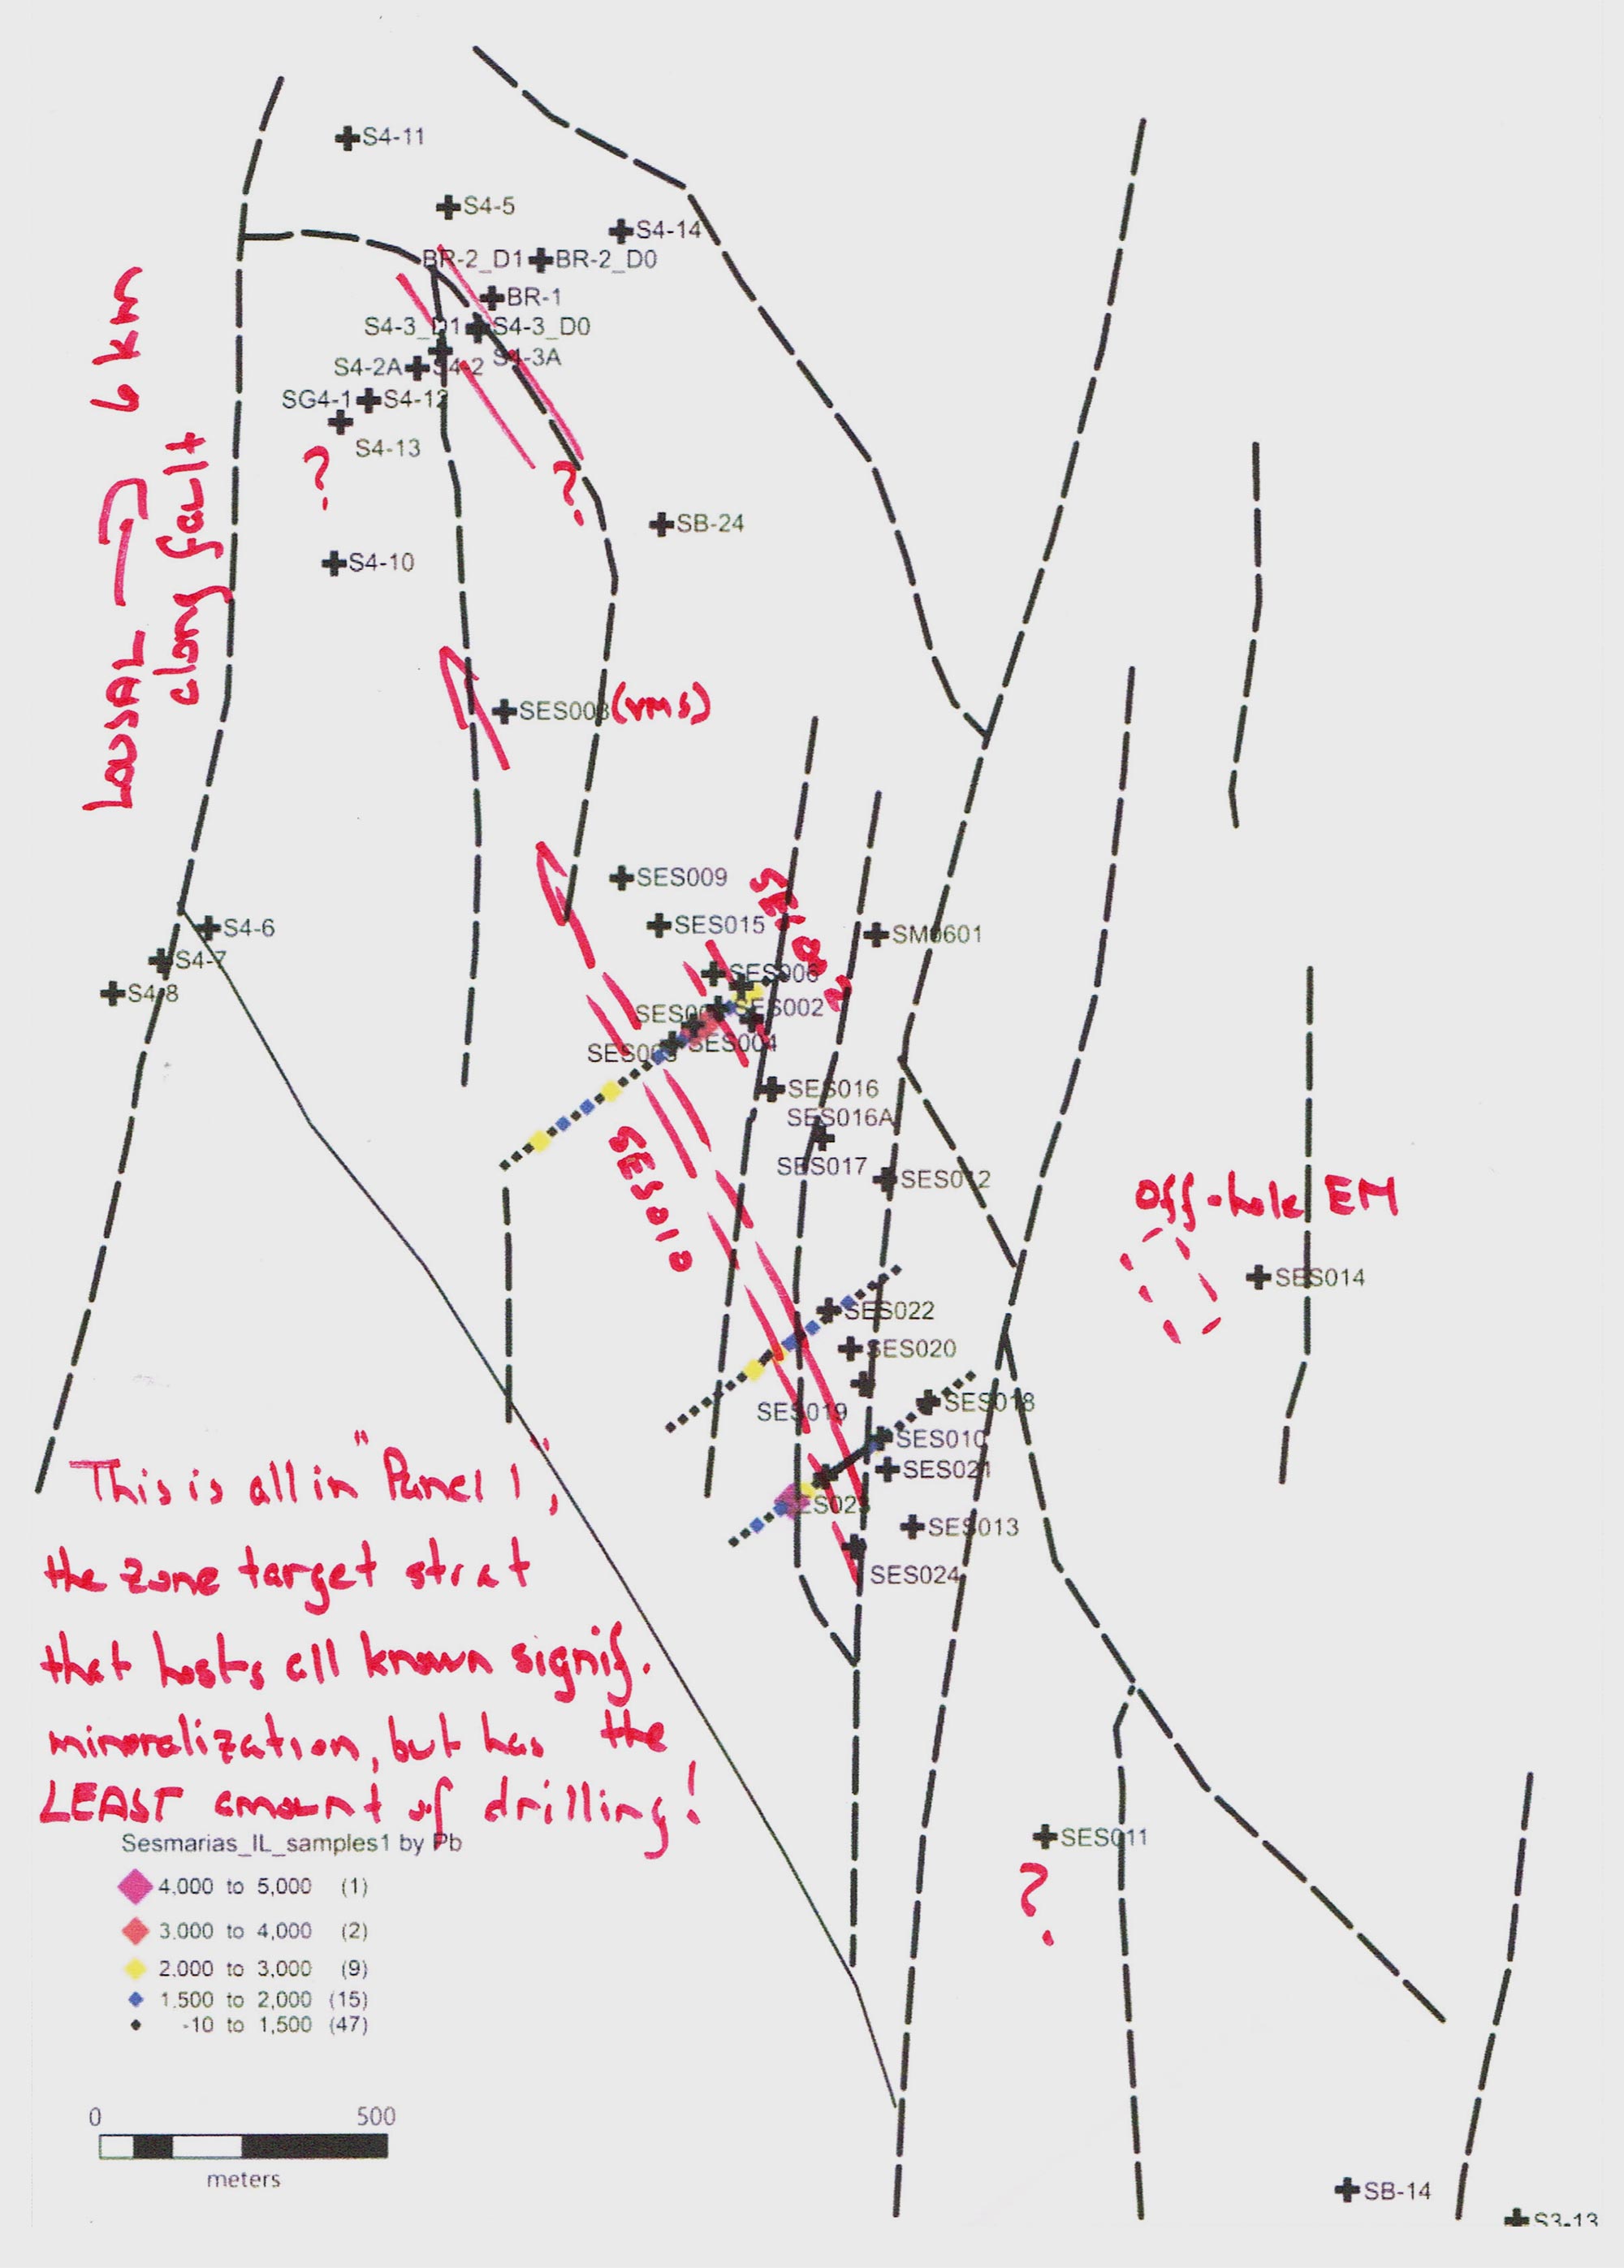 S4-11
S4-5
S4-14
BR-2_D1 BR-2_D0
BR-1
S4-3_D1 S4-3_D0
S4-3A
S4-2A S4-2
SG4-1 S4-12
S4-13
?
?
6 km
LOUSAL
along fault
SB-24
S4-10
SES008 (VMS)
SES009
SES015
SM0601
S4-6
S4-7
S4-8
SES006
SES002
SES004
SES016
SES016A
SES017
SES012
SES010
Off-hole EM
SES014
SES022
SES020
SES019
SES018
SES010
SES021
SES023
SES013
SES024
This is all in "Panel 1",
the zone target strat
that hosts all known signif.
mineralization, but has the
LEAST amount of drilling!
SES011
?
Sesmarias_IL_samples1 by Pb
4,000 to 5,000 (1)
3,000 to 4,000 (2)
2,000 to 3,000 (9)
1,500 to 2,000 (15)
-10 to 1,500 (47)
0 500
meters
SB-14
S3-13